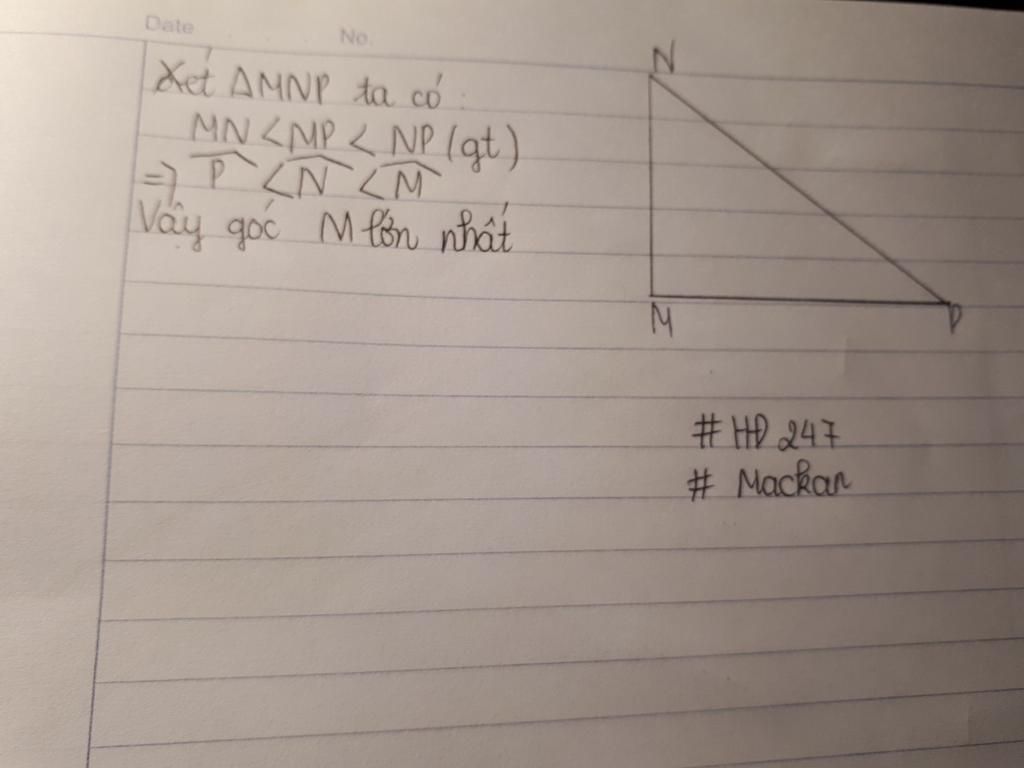 Date No.
Xét ΔMNP ta có :
MN < MP < NP (gt)
=> P̂ < N̂ < M̂
Vậy góc M lớn nhất
N
M P
# HD 247
# Mackan